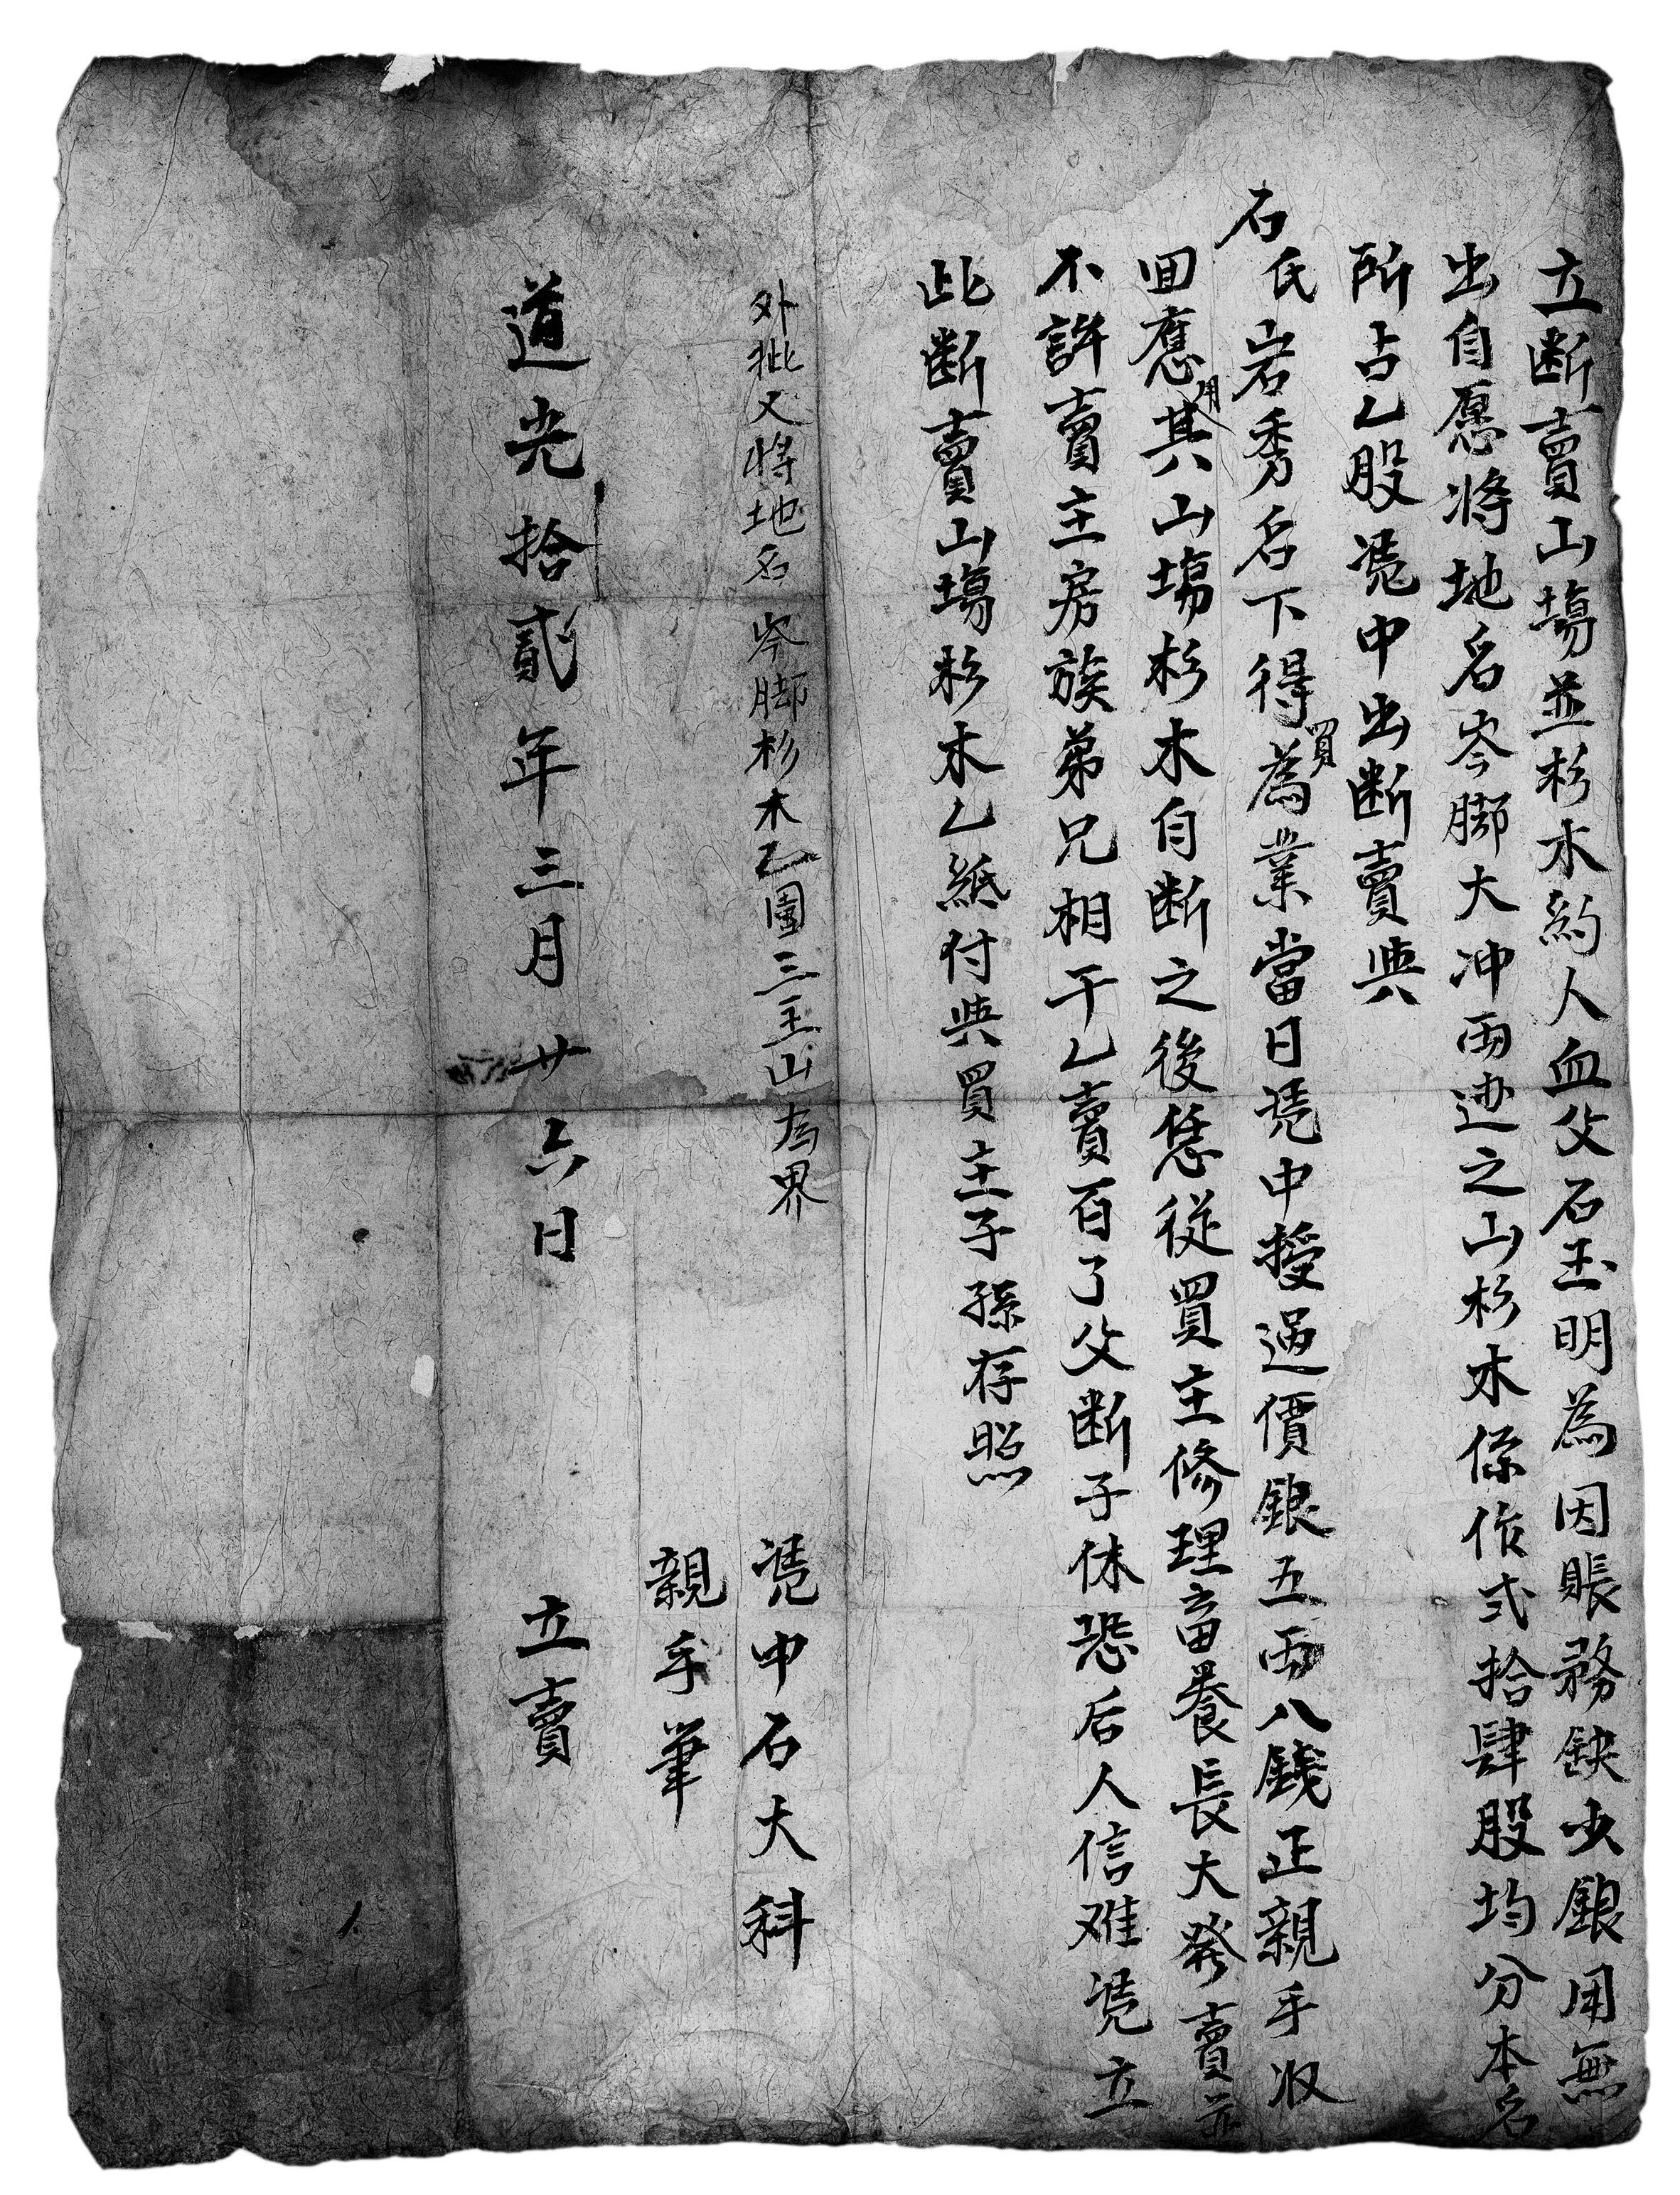 立断賣山塲並杉木約人血父石玉明為因賬務缺少銀用無
出自愿将地名岑脚大冲両边之山杉木係作弍拾肆股均分本名
所占乙股凴中出断賣與
石氏岩秀名下得買為業當日凴中授過價銀五両八錢正親手収
回應用其山塲杉木自断之後恁從買主修理畜養長大発賣亦
不許賣主房族弟兄相干乙賣百了父断子休恐后人信难凴立
此断賣山塲杉木乙紙付與買主子孫存照
外批又将地名岑脚杉木乙團三至山為界
凴中石大科
親手筆
道光拾貳年三月廿六日 立賣